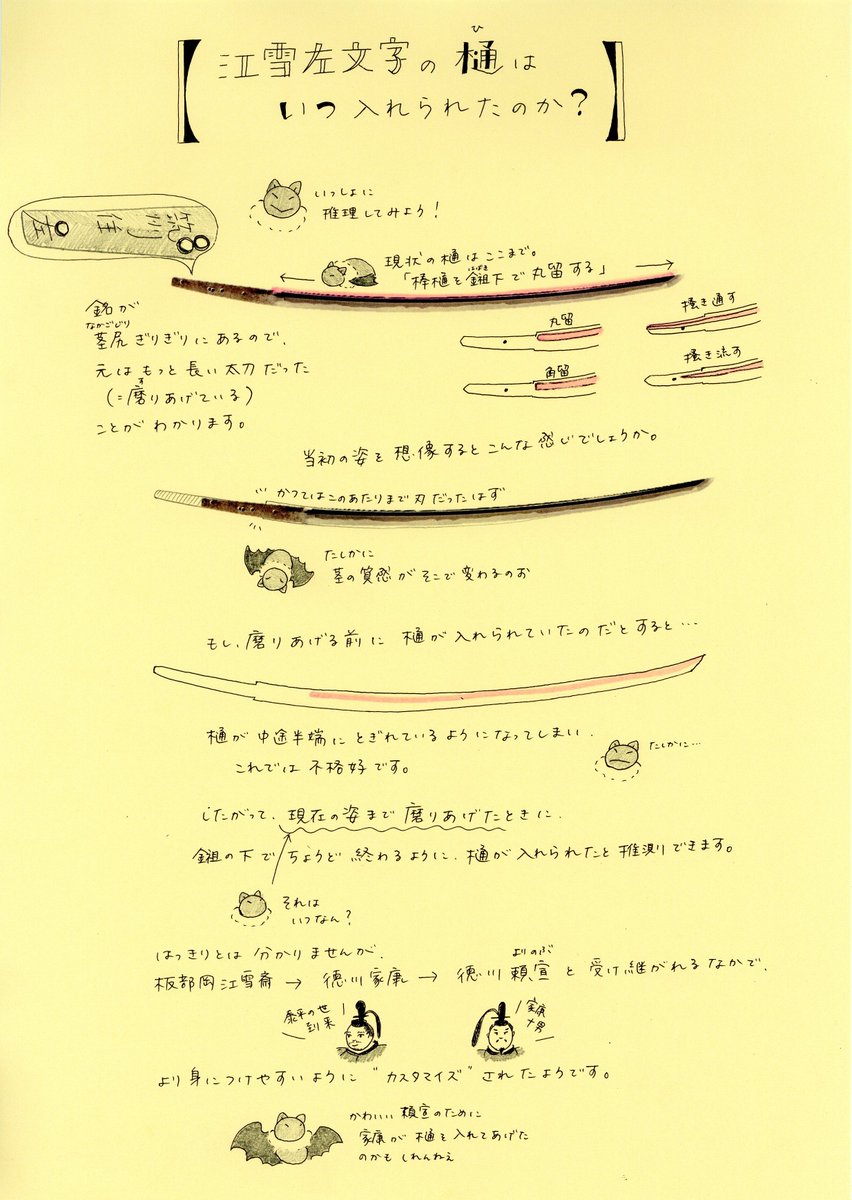 【江雪左文字の樋は
ひ
いつ入れられたのか?】
いっしょに
推理してみよう!
筑州住左
現状の樋はここまで。
「棒樋を鎺下で丸留する」
はばき
銘が
なかごじり
茎尻ぎりぎりにあるので、
元はもっと長い太刀だった
す
(=磨りあげている)
ことがわかります。
丸留
掻き通す
角留
掻き流す
当初の姿を想像するとこんな感じでしょうか。
かつてはこのあたりまで刃だったはず
たしかに
茎の質感がそこで変わるのお
もし、磨りあげる前に樋が入れられていたのだとすると…
樋が中途半端にとぎれているようになってしまい、
これでは不格好です。
たしかに…
したがって、現在の姿まで磨りあげたときに、
鎺の下でちょうど終わるように、樋が入れられたと推測できます。
それは
いつなん?
はっきりとは分かりませんが、
よりのぶ
板部岡江雪斎→徳川家康→徳川頼宣と受け継がれるなかで、
泰平の世
到来
家康
十男
より身につけやすいように"カスタマイズ"されたようです。
かわいい頼宣のために
家康が樋を入れてあげた
のかもしれんねえ